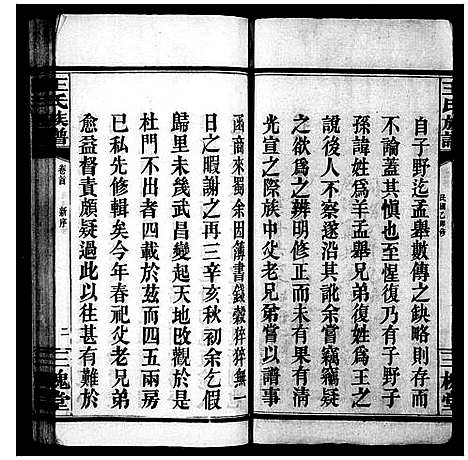 王氏族譜
民國乙卯修
三槐堂
自子野迄孟舉數傳之缺略則存而
不論蓋其愼也至惺復乃有子野子
孫諱姓爲羊孟舉兄弟復姓爲王之
說後人不察遂沿其訛余嘗竊竊疑
之欲爲之辨明修正而未有果有淸
光宣之際族中父老兄弟嘗以譜事
函商來蜀余因簿書錢穀猝猝無一
日之暇謝之再三辛亥秋初余乞假
歸里未幾武昌變起天地改觀於是
杜門不出者四載於茲而四五兩房
已私先修輯矣今年春祀父老兄弟
愈益督責頗疑過此以往甚有難於
王氏族譜
卷首
新序
二
三槐堂